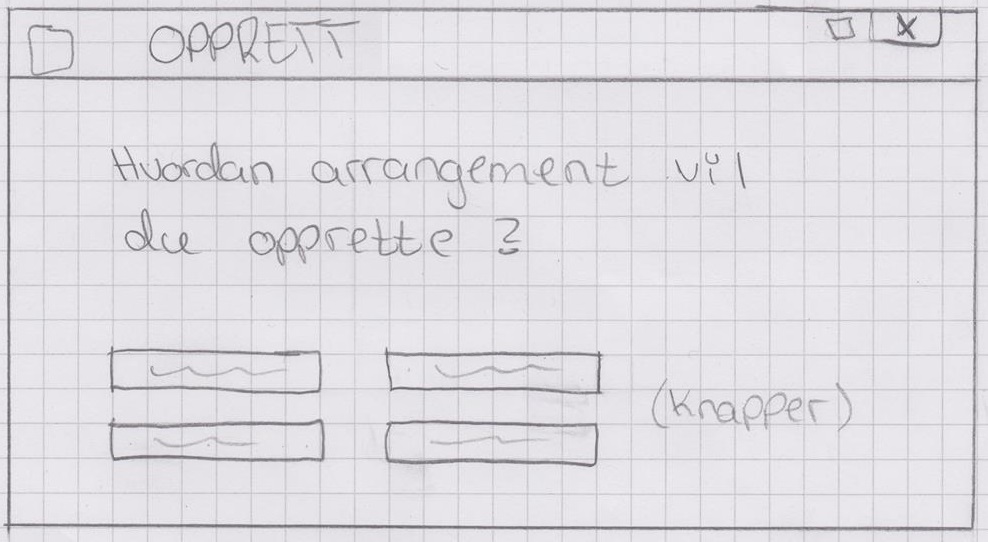 OPPRETT
X
Hvordan arrangement vil
du opprette ?
(Knapper)